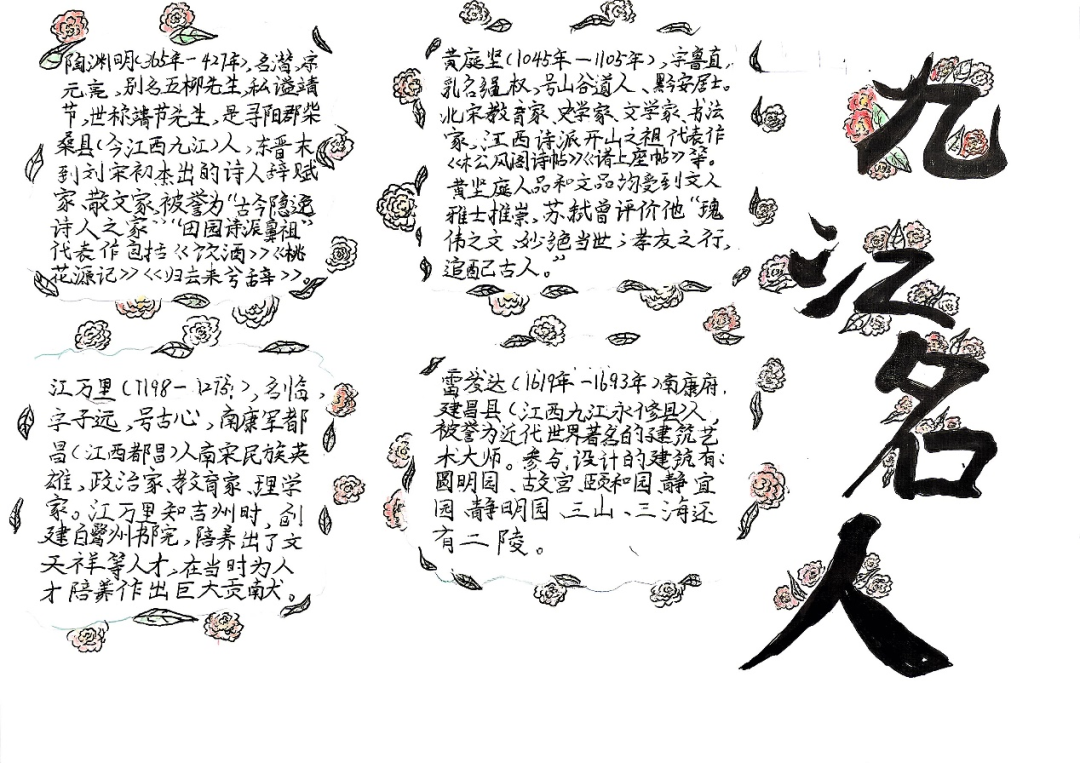 九江名人
陶渊明(365年-427年),名潜,字
元亮,别名五柳先生,私谥靖
节,世称靖节先生,是寻阳郡柴
桑县(今江西九江)人,东晋末
到刘宋初杰出的诗人辞赋
家、散文家,被誉为“古今隐逸
诗人之家”“田园诗派鼻祖”
代表作包括《饮酒》《桃
花源记》《归去来兮辞》。
黄庭坚(1045年-1105年),字鲁直,
乳名绳权,号山谷道人、黔安居士。
北宋教育家、史学家、文学家、书法
家、江西诗派开山之祖代表作
《松风阁诗帖》《诸上座帖》等。
黄坚庭人品和文品均受到文人
雅士推崇,苏轼曾评价他“瑰
伟之文,妙绝当世;孝友之行,
追配古人。”
江万里(1198-1275),名临,
字子远,号古心,南康军都
昌(江西都昌)人南宋民族英
雄,政治家、教育家、理学
家。江万里知吉州时,创
建白鹭州书院,陪养出了文
天祥等人才,在当时为人
才陪养作出巨大贡献。
雷发达(1619年-1693年)南康府,
建昌县(江西九江永修县)人,
被誉为近代世界著名的建筑艺
术大师。参与设计的建筑有:
圆明园、故宫、颐和园、静宜
园、静明园、三山、三海还
有二陵。